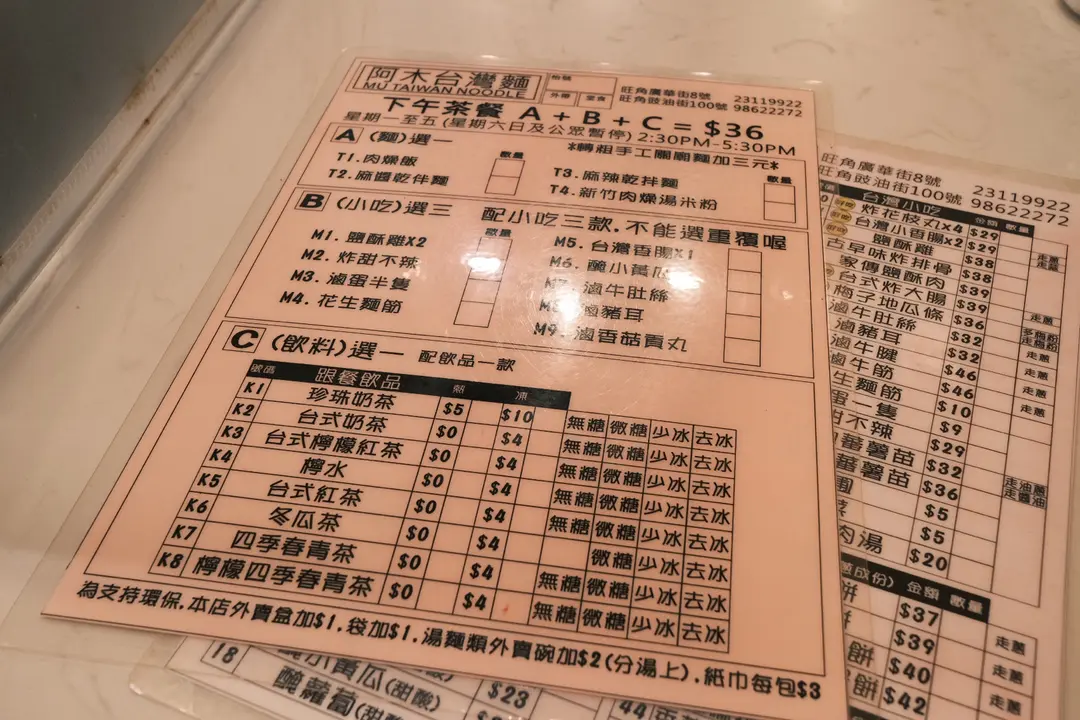 阿木台灣麵
MU TAIWAN NOODLE
枱號
外帶 堂食
旺角廣華街8號 23119922
旺角豉油街100號 98622272
下午茶餐 A + B + C = $36
星期一至五(星期六日及公眾暫停) 2:30PM-5:30PM
A (麵)選一
*轉粗手工關廟麵加三元*
數量 數量
T1.肉燥飯
T2.麻醬乾伴麵
T3.麻辣乾拌麵
T4.新竹肉燥湯米粉
B (小吃)選三 配小吃三款,不能選重覆喔
數量
M1. 鹽酥雞X2
M2. 炸甜不辣
M3. 滷蛋半隻
M4. 花生麵筋
M5. 台灣香腸X1
M6. 醃小黃瓜
M7. 滷牛肚絲
M8. 滷豬耳
M9. 滷香菇貢丸
C (飲料)選一 配飲品一款
號碼 跟餐飲品 熱 凍
K1 珍珠奶茶 $5 $10 無糖 微糖 少冰 去冰
K2 台式奶茶 $0 $4 無糖 微糖 少冰 去冰
K3 台式檸檬紅茶 $0 $4 無糖 微糖 少冰 去冰
K4 檸水 $0 $4 無糖 微糖 少冰 去冰
K5 台式紅茶 $0 $4 無糖 微糖 少冰 去冰
K6 冬瓜茶 $0 $4 微糖 少冰 去冰
K7 四季春青茶 $0 $4 無糖 微糖 少冰 去冰
K8 檸檬四季春青茶 $0 $4 無糖 微糖 少冰 去冰
為支持環保,本店外賣盒加$1,袋加$1,湯麵類外賣碗加$2(分湯上),紙巾每包$3
旺角廣華街8號 23119922
旺角豉油街100號 98622272
台灣小吃 金額 數量
炸花枝丸x4 $29
台灣小香腸x2 $29
鹽酥雞 $38 走蔥
古早味炸排骨 $38
家傳鹽酥肉 $39
台式炸大腸 $39
梅子地瓜條 $36 走蔥
滷牛肚絲 $32
滷豬耳 $32 走蔥
滷牛腱 $46 走蔥
滷牛筋 $46 走蔥
生麵筋 $10
蛋二隻 $9
甜不辣 $29
蕃薯苗 $32
蕃薯苗 $36
$5
$5
肉湯 $20
成份) 金額 數量
餅 $37
$39 走蔥
餅 $40 走蔥
餅 $42 走蔥
18 醃小黃瓜(甜酸) $23
醃蘿蔔(甜酸)
44